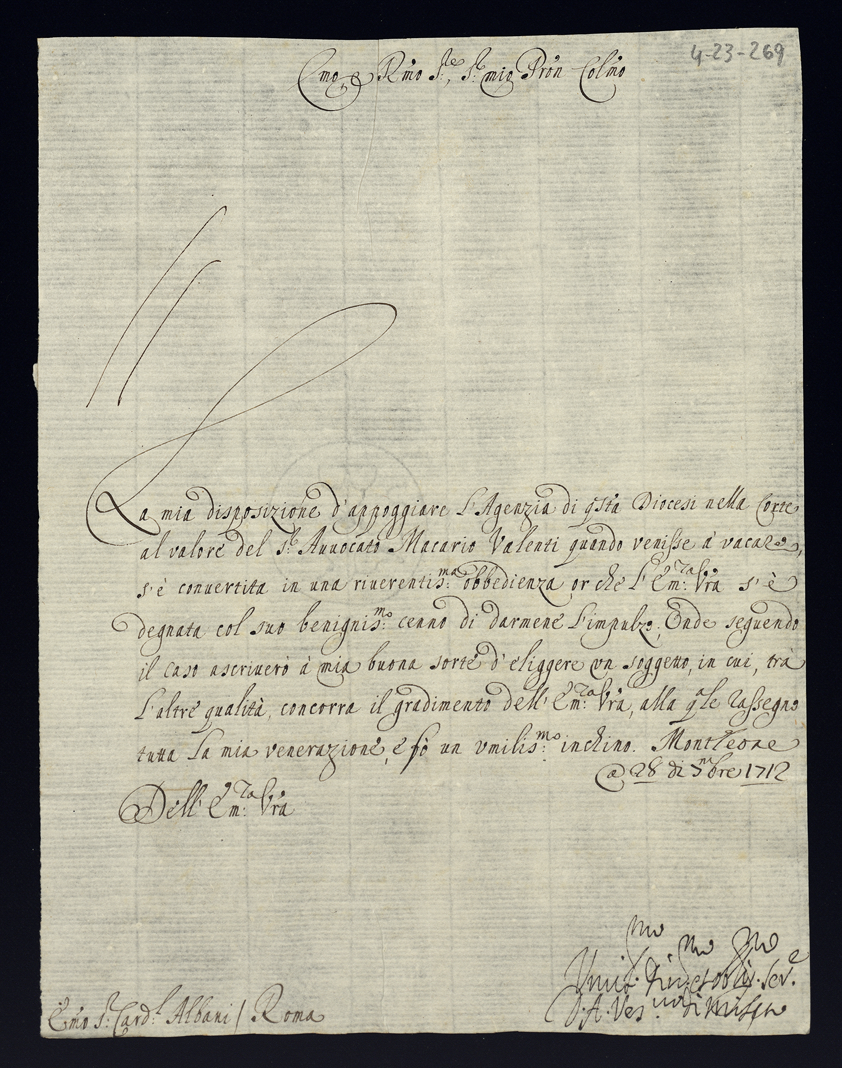 4-23-269
Emo e Rmo Sre, Sr mio Pron Colmo
La mia disposizione d'appoggiare l'Agenzia di qsta Diocesi nella Corte
al valore del sr Auuocato Macario Valenti quando venisse à vacare,
s'è conuertita in una riuerentisma: obbedienza or che l'Emza: Vra s'è
degnata col suo benignismo: cenno di darmene l'impulzo, Onde seguendo
il caso ascriuerò à mia buona sorte d'eliggere vn soggetto, in cui, trà
l'altre qualità, concorra il gradimento dell'Emza: Vra, alla qale rassegno
tutta la mia venerazione, e fò un vmilismo: inchino. Montleone
@ 28 di Xmbre 1712
Dell'Emza: Vra
Vmilmo Diumo Obbligmo Ser.e
D. A. Vesuo di Mileto
Emo sr Cardl Albani / Roma